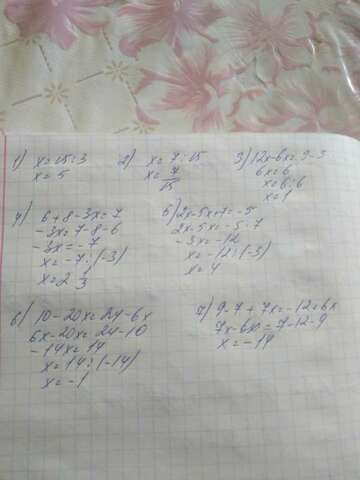 1) x = 15 : 3
x = 5
2) x = 7 : 15
x = 7/15
3) 12x - 6x = 9 - 3
6x = 6
x = 6 : 6
x = 1
4) 6 + 8 - 3x = 7
-3x = 7 - 8 - 6
-3x = -7
x = -7 : (-3)
x = 2 1/3
5) 2x - 5x + 7 = -5
2x - 5x = -5 - 7
-3x = -12
x = -12 : (-3)
x = 4
6) 10 - 20x = 24 - 6x
6x - 20x = 24 - 10
-14x = 14
x = 14 : (-14)
x = -1
7) 9 - 7 + 7x = -12 + 6x
7x - 6x = 7 - 12 - 9
x = -14